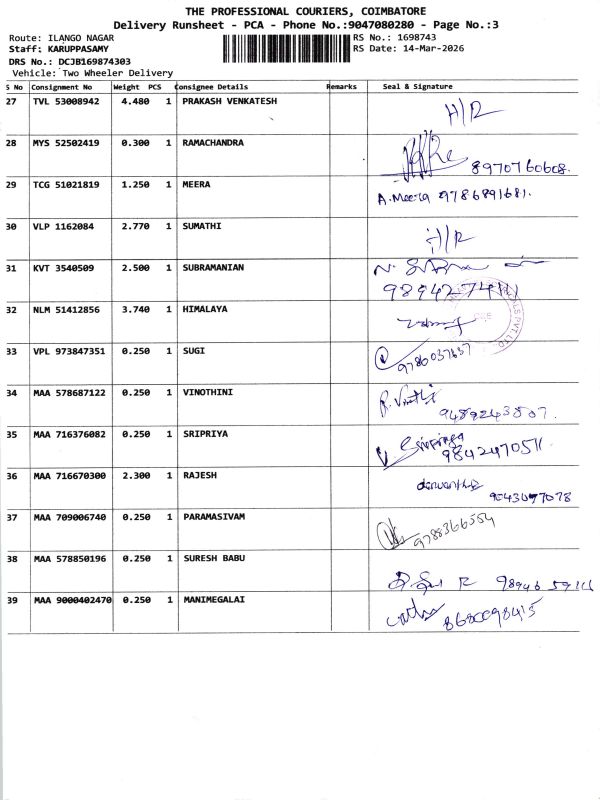 THE PROFESSIONAL COURIERS, COIMBATORE
Delivery Runsheet - PCA - Phone No.:9047080280 - Page No.:3
Route: ILANGO NAGAR RS No.: 1698743
Staff: KARUPPASAMY RS Date: 14-Mar-2026
DRS No.: DCJB169874303
Vehicle: Two Wheeler Delivery
S No Consignment No Weight PCS Consignee Details Remarks Seal & Signature
27 TVL 53008942 4.480 1 PRAKASH VENKATESH H/R
28 MYS 52502419 0.300 1 RAMACHANDRA 8970760608.
29 TCG 51021819 1.250 1 MEERA A.Meera 9786891681.
30 VLP 1162084 2.770 1 SUMATHI H/R
31 KVT 3540509 2.500 1 SUBRAMANIAN
32 NLM 51412856 3.740 1 HIMALAYA
33 VPL 973847351 0.250 1 SUGI 9786037637
34 MAA 578687122 0.250 1 VINOTHINI 9489243807.
35 MAA 716376082 0.250 1 SRIPRIYA 9842470511.
36 MAA 716670300 2.300 1 RAJESH
37 MAA 709006740 0.250 1 PARAMASIVAM 9788366554
38 MAA 578850196 0.250 1 SURESH BABU
39 MAA 9000402470 0.250 1 MANIMEGALAI 8680098415